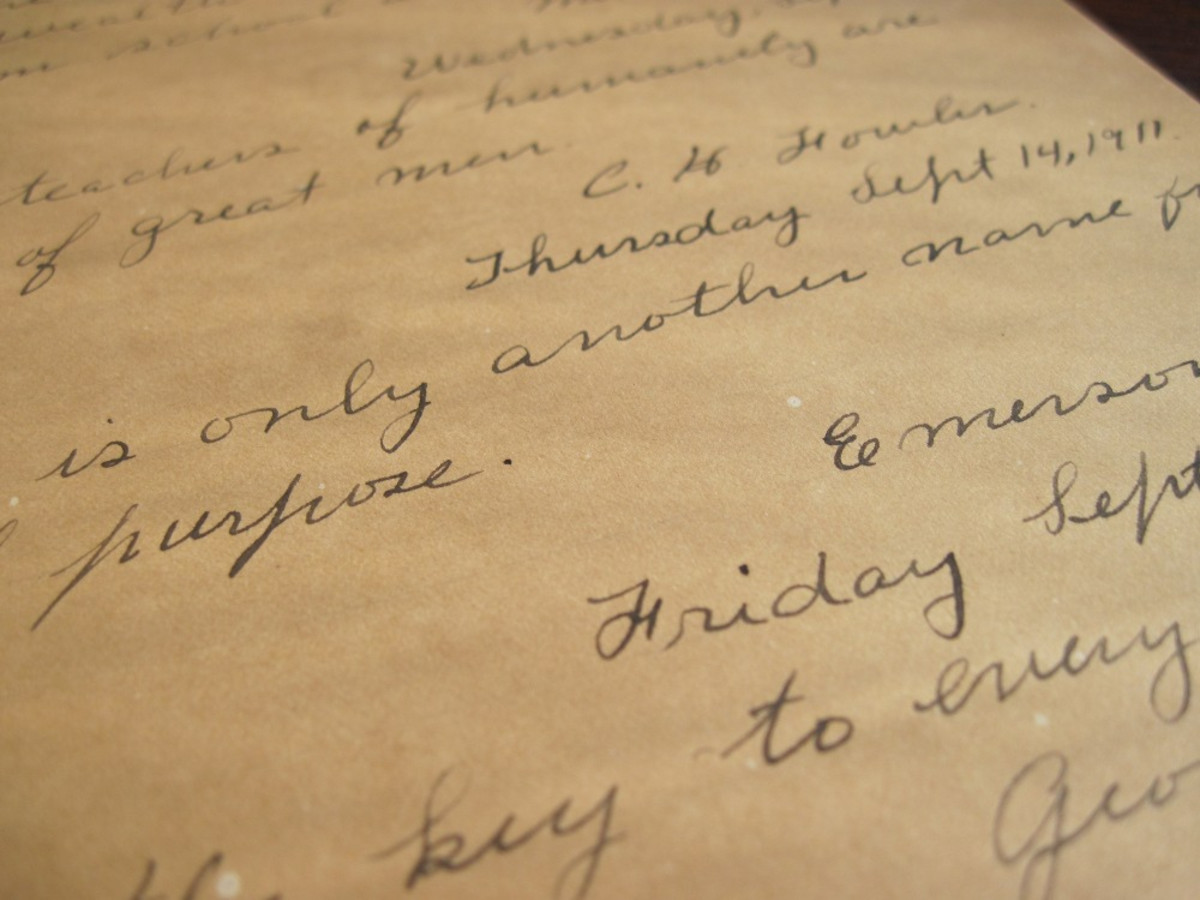 school
Wednesday,
teachers of humanity are
of great men.
C. H Fowler.
Thursday Sept 14, 1911.
is only another name
purpose.
Emerson
Friday Sept
to every
the key
Geo